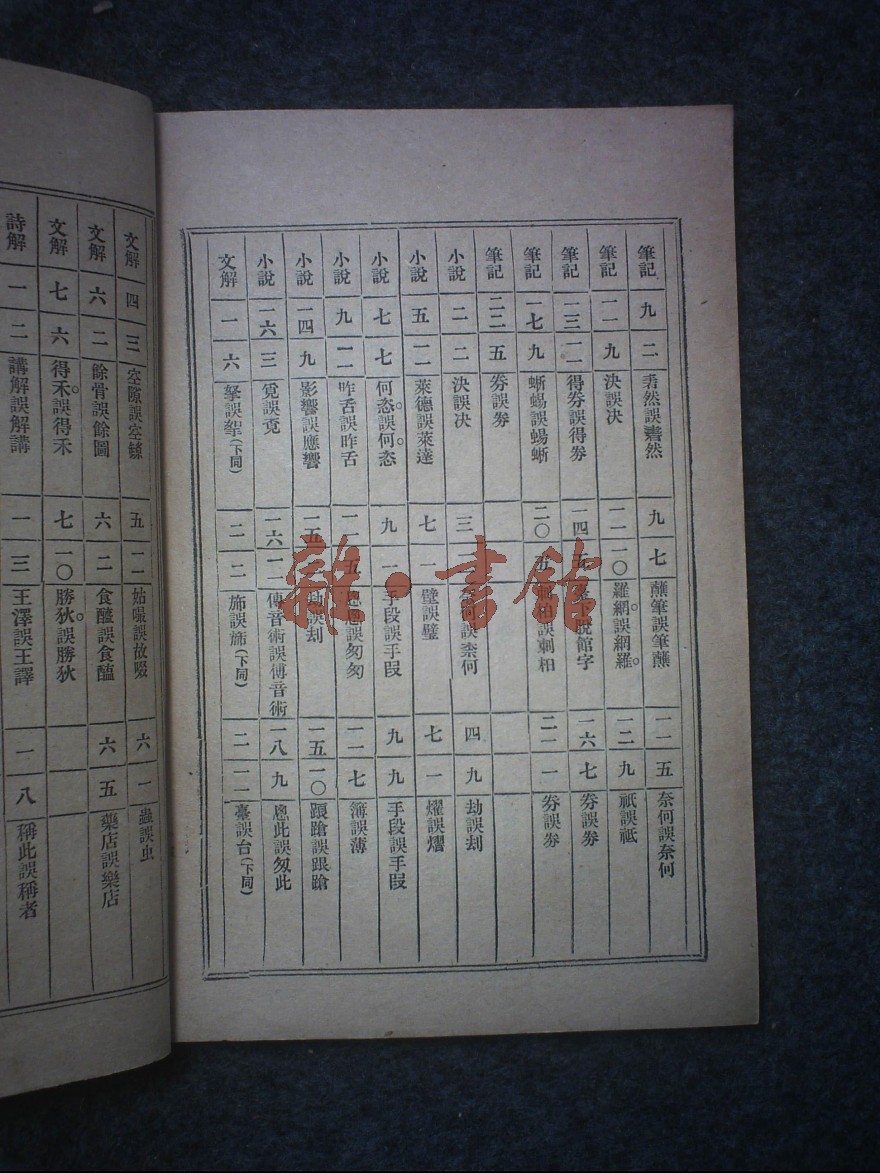 筆記 九 二 砉然誤砉然 九 七 蘸筆誤筆蘸 一一 五 奈何誤奈何
筆記 一一 九 決誤决 一一 一〇 羅網誤網羅。 一二 九 祇誤祗
筆記 一三 一一 得券誤得劵 一四 五 下脫館字 一六 七 券誤劵
筆記 一七 九 蜥蜴誤蜴蜥 二〇 五 誤刺相 二一 一 券誤劵
筆記 二二 五 券誤劵
小說 二 二 決誤决 三 何誤柰何 四 九 劫誤刦
小說 五 一一 萊德誤萊達 七 一 璧誤壁 七 一 燿誤熠
小說 七 七 何恣。誤何。恣 九 一 手段誤手叚 九 九 手段誤手叚
小說 九 一一 咋舌誤昨舌 一一 五 誤匆匆 一一 七 簿誤薄
小說 一四 九 影響誤應響 一五 劫誤刦 一五 一〇 踉蹌誤跟蹌
小說 一六 三 覓誤覔 一六 一一 傳音術誤傅音術 一八 九 悤此誤匆此
文解 一 六 拏誤挐(下同) 二 二 誤(下同) 二 一一 臺誤台(下同)
文解 四 三 空隙誤空罅 五 一一 姑嘬誤故啜 六 一 蟲誤虫
文解 六 二 餘骨誤餘圖 六 二 食醢誤食醯 六 五 藥店誤樂店
文解 七 六 得禾。誤得禾 七 一〇 勝狄。誤勝狄
詩解 一 二 講解誤解講 一 三 王澤誤王譯 一 八 稱此誤稱者
雜·書館